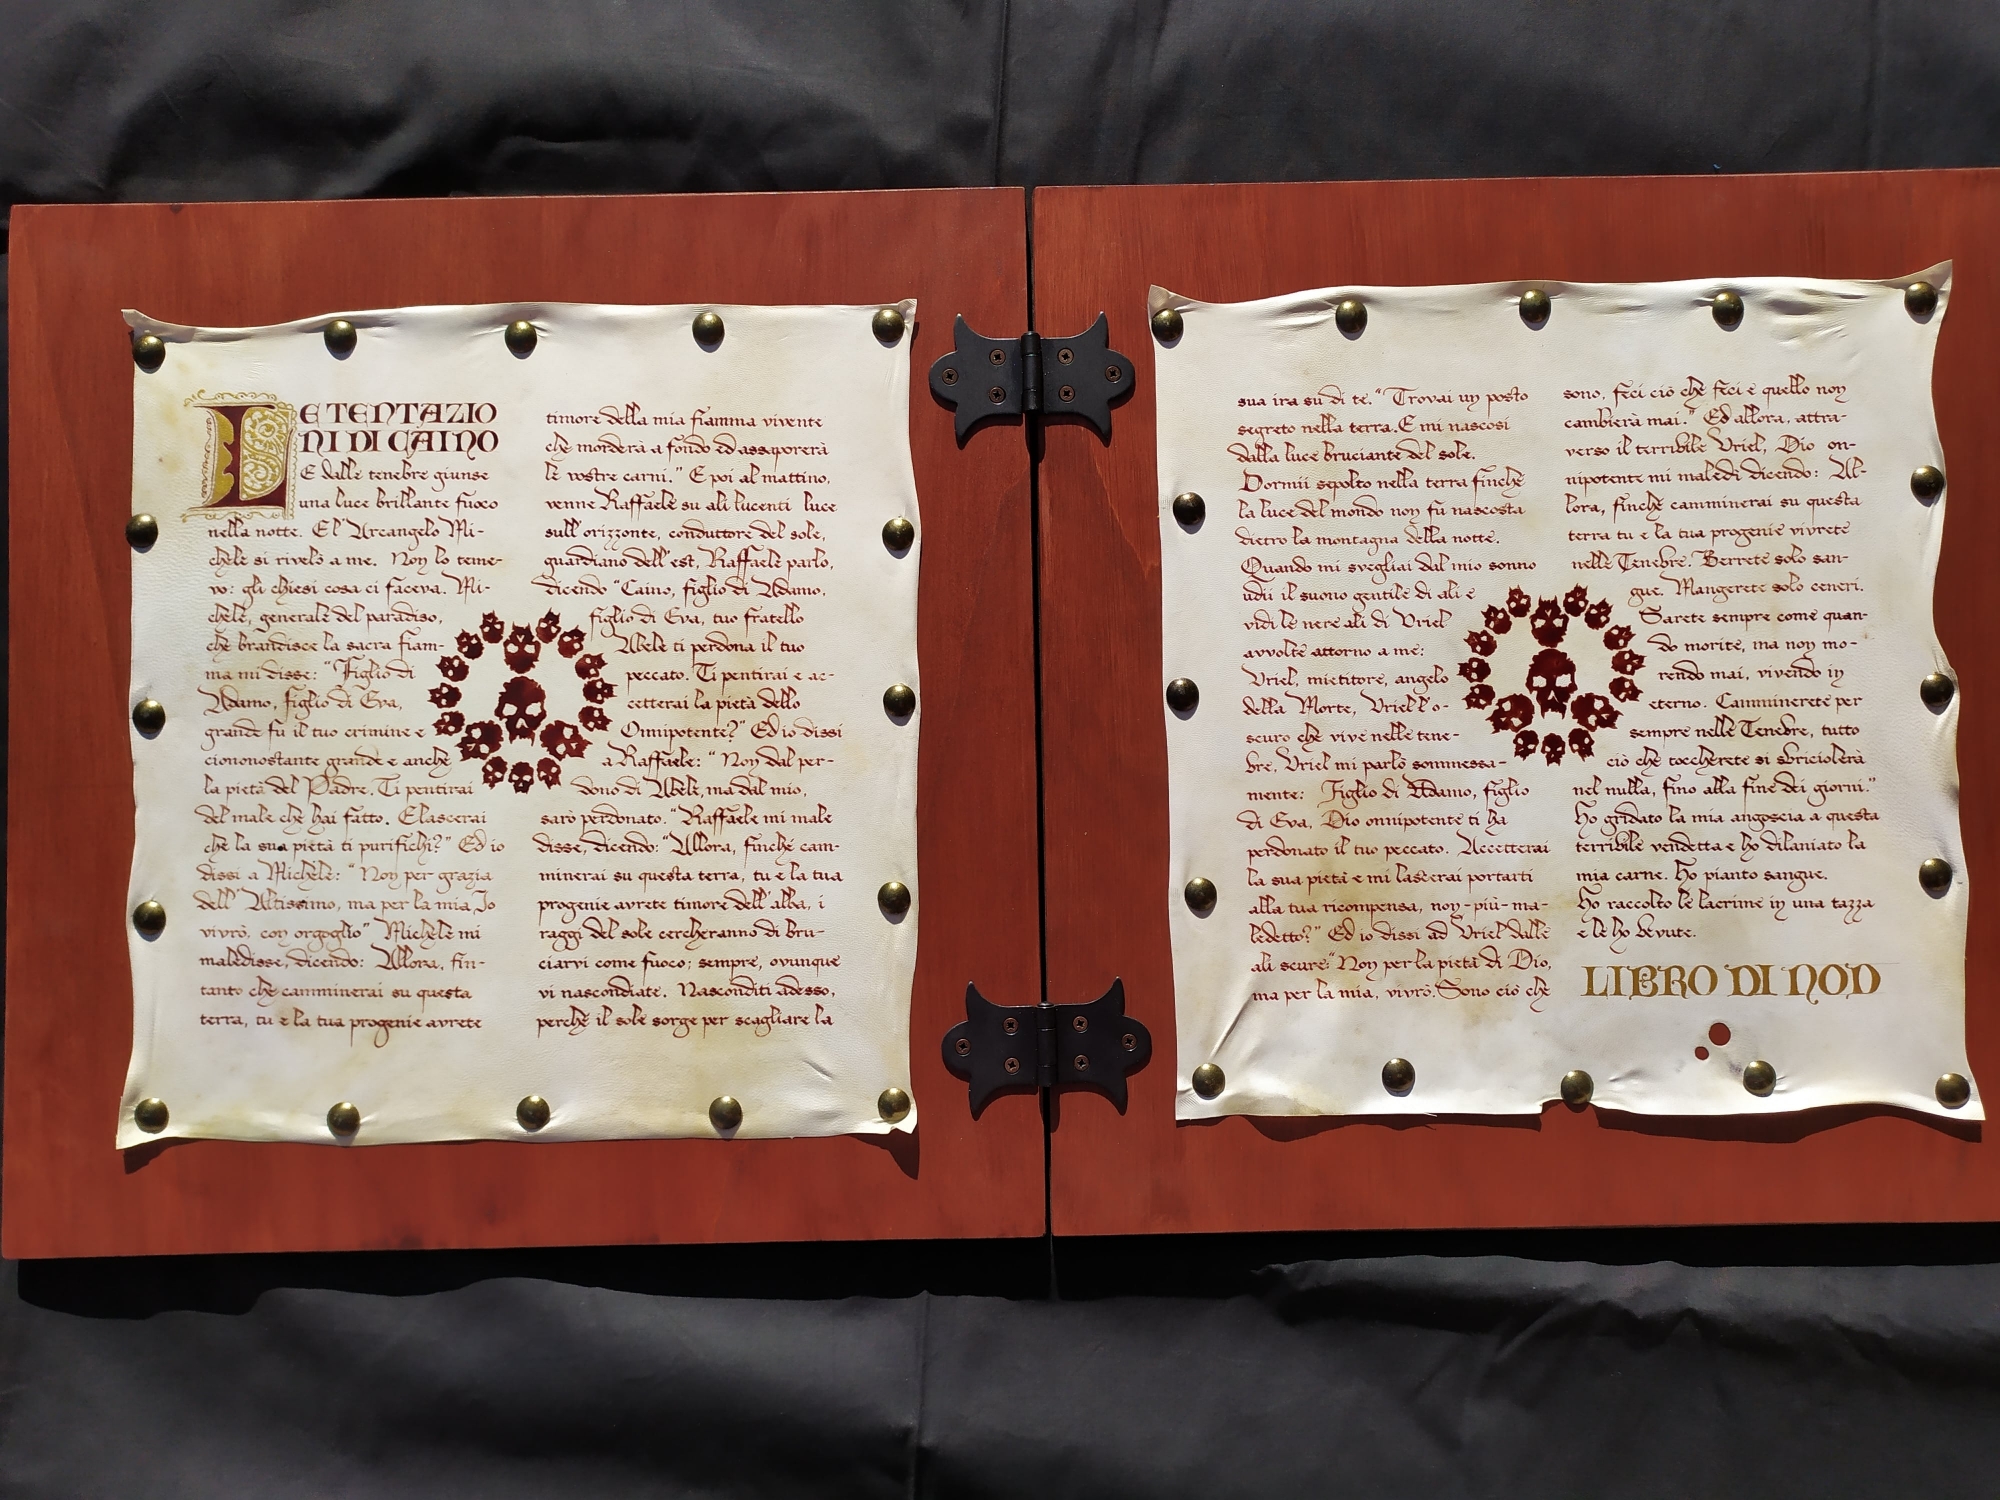 LE TENTAZIO
NI DI CAINO
E dalle tenebre giunse
una luce brillante fuoco
nella notte. E l'Arcangelo Mi-
chele si rivelò a me. Non lo teme-
vo: gli chiesi cosa ci faceva. Mi-
chele, generale del paradiso,
che brandisce la sacra fiam-
ma mi disse: "Figlio di
Adamo, figlio di Eva,
grande fu il tuo crimine e
ciononostante grande e anche
la pietà del Padre. Ti pentirai
del male che hai fatto. E lascerai
che la sua pietà ti purifichi?" Ed io
dissi a Michele: "Non per grazia
dell'Altissimo, ma per la mia Io
vivrò, con orgoglio" Michele mi
maledisse, dicendo: Allora, fin-
tanto che camminerai su questa
terra, tu e la tua progenie avrete
timore della mia fiamma vivente
che morderà a fondo ed assaporerà
le vostre carni." E poi al mattino,
venne Raffaele su ali lucenti luce
sull'orizzonte, conduttore del sole,
guardiano dell'est, Raffaele parlo,
dicendo "Caino, figlio di Adamo,
figlio di Eva, tuo fratello
Abele ti perdona il tuo
peccato. Ti pentirai e ac-
cetterai la pietà dello
Onnipotente?" Ed io dissi
a Raffaele: "Non dal per-
dono di Abele, ma dal mio,
sarò perdonato. "Raffaele mi male
disse, dicendo: "Allora, finché cam-
minerai su questa terra, tu e la tua
progenie avrete timore dell'alba, i
raggi del sole cercheranno di bru-
ciarvi come fuoco; sempre, ovunque
vi nascondiate. Nasconditi adesso,
perché il sole sorge per scagliare la
sua ira su di te." Trovai un posto
segreto nella terra. E mi nascosi
dalla luce bruciante del sole.
Dormii sepolto nella terra finché
la luce del mondo non fu nascosta
dietro la montagna della notte.
Quando mi svegliai dal mio sonno
udii il suono gentile di ali e
vidi le nere ali di Uriel
avvolte attorno a me:
Uriel, mietitore, angelo
della Morte, Uriel l'o-
scuro che vive nelle tene-
bre, Uriel mi parlò sommessa-
mente: Figlio di Adamo, figlio
di Eva, Dio onnipotente ti ha
perdonato il tuo peccato. Accetterai
la sua pietà e mi lascerai portarti
alla tua ricompensa, non-più-ma-
ledetto?" Ed io dissi ad Uriel dalle
ali scure: "Non per la pietà di Dio,
ma per la mia, vivrò. Sono ciò che
sono, feci ciò che feci e quello non
cambierà mai." Ed allora, attra-
verso il terribile Uriel, Dio on-
nipotente mi maledì dicendo: Al-
lora, finché camminerai su questa
terra tu e la tua progenie vivrete
nelle Tenebre. Berrete solo san-
gue. Mangerete solo ceneri.
Sarete sempre come quan-
do morite, ma non mo-
rendo mai, vivendo in
eterno. Camminerete per
sempre nelle Tenebre, tutto
ciò che toccherete si sbriciolerà
nel nulla, fino alla fine dei giorni."
Ho gridato la mia angoscia a questa
terribile vendetta e ho dilaniato la
mia carne. Ho pianto sangue.
Ho raccolto le lacrime in una tazza
e le ho bevute.
LIBRO DI NOD